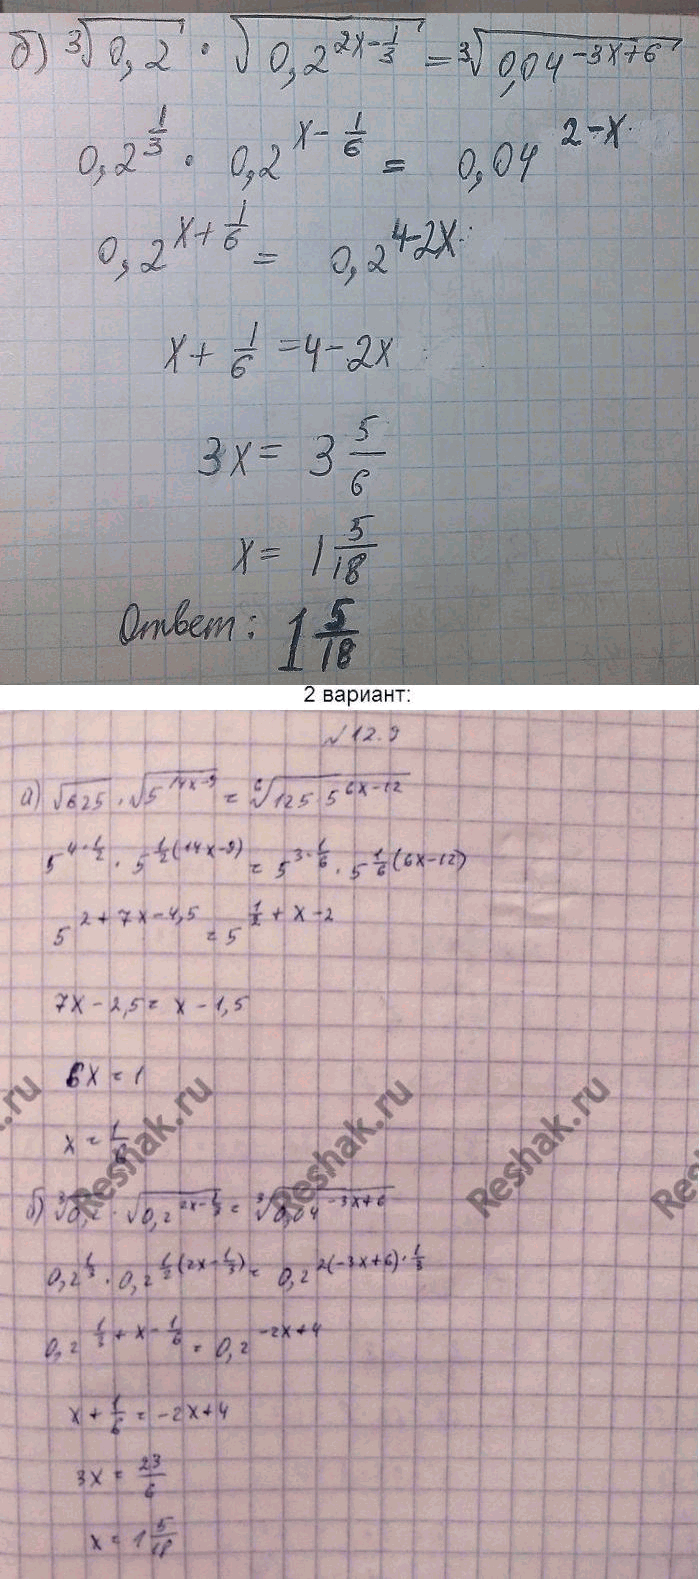 б) ∛0,2 · √(0,2^(2x-1/3)) = ∛(0,04^(-3x+6))
0,2^(1/3) · 0,2^(x-1/6) = 0,04^(2-x)
0,2^(x+1/6) = 0,2^(4-2x)
x + 1/6 = 4-2x
3x = 3 5/6
x = 1 5/18
Ответ: 1 5/18
2 вариант:
№12.9
а) √625 · √(5^(14x-9)) = ⁶√(125·5^(6x-12))
5^(4·1/2) · 5^(1/2(14x-9)) = 5^(3·1/6) · 5^(1/6(6x-12))
5^(2+7x-4,5) = 5^(1/2+x-2)
7x-2,5 = x-1,5
6x = 1
x = 1/6
Reshak.ru Reshak.ru Reshak.ru
б) ∛0,2 · √(0,2^(2x-1/3)) = ∛(0,04^(-3x+6))
0,2^(1/3) · 0,2^(1/2(2x-1/3)) = 0,2^(2(-3x+6)·1/3)
0,2^(1/3+x-1/6) = 0,2^(-2x+4)
x + 1/6 = -2x+4
3x = 23/6
x = 1 5/18